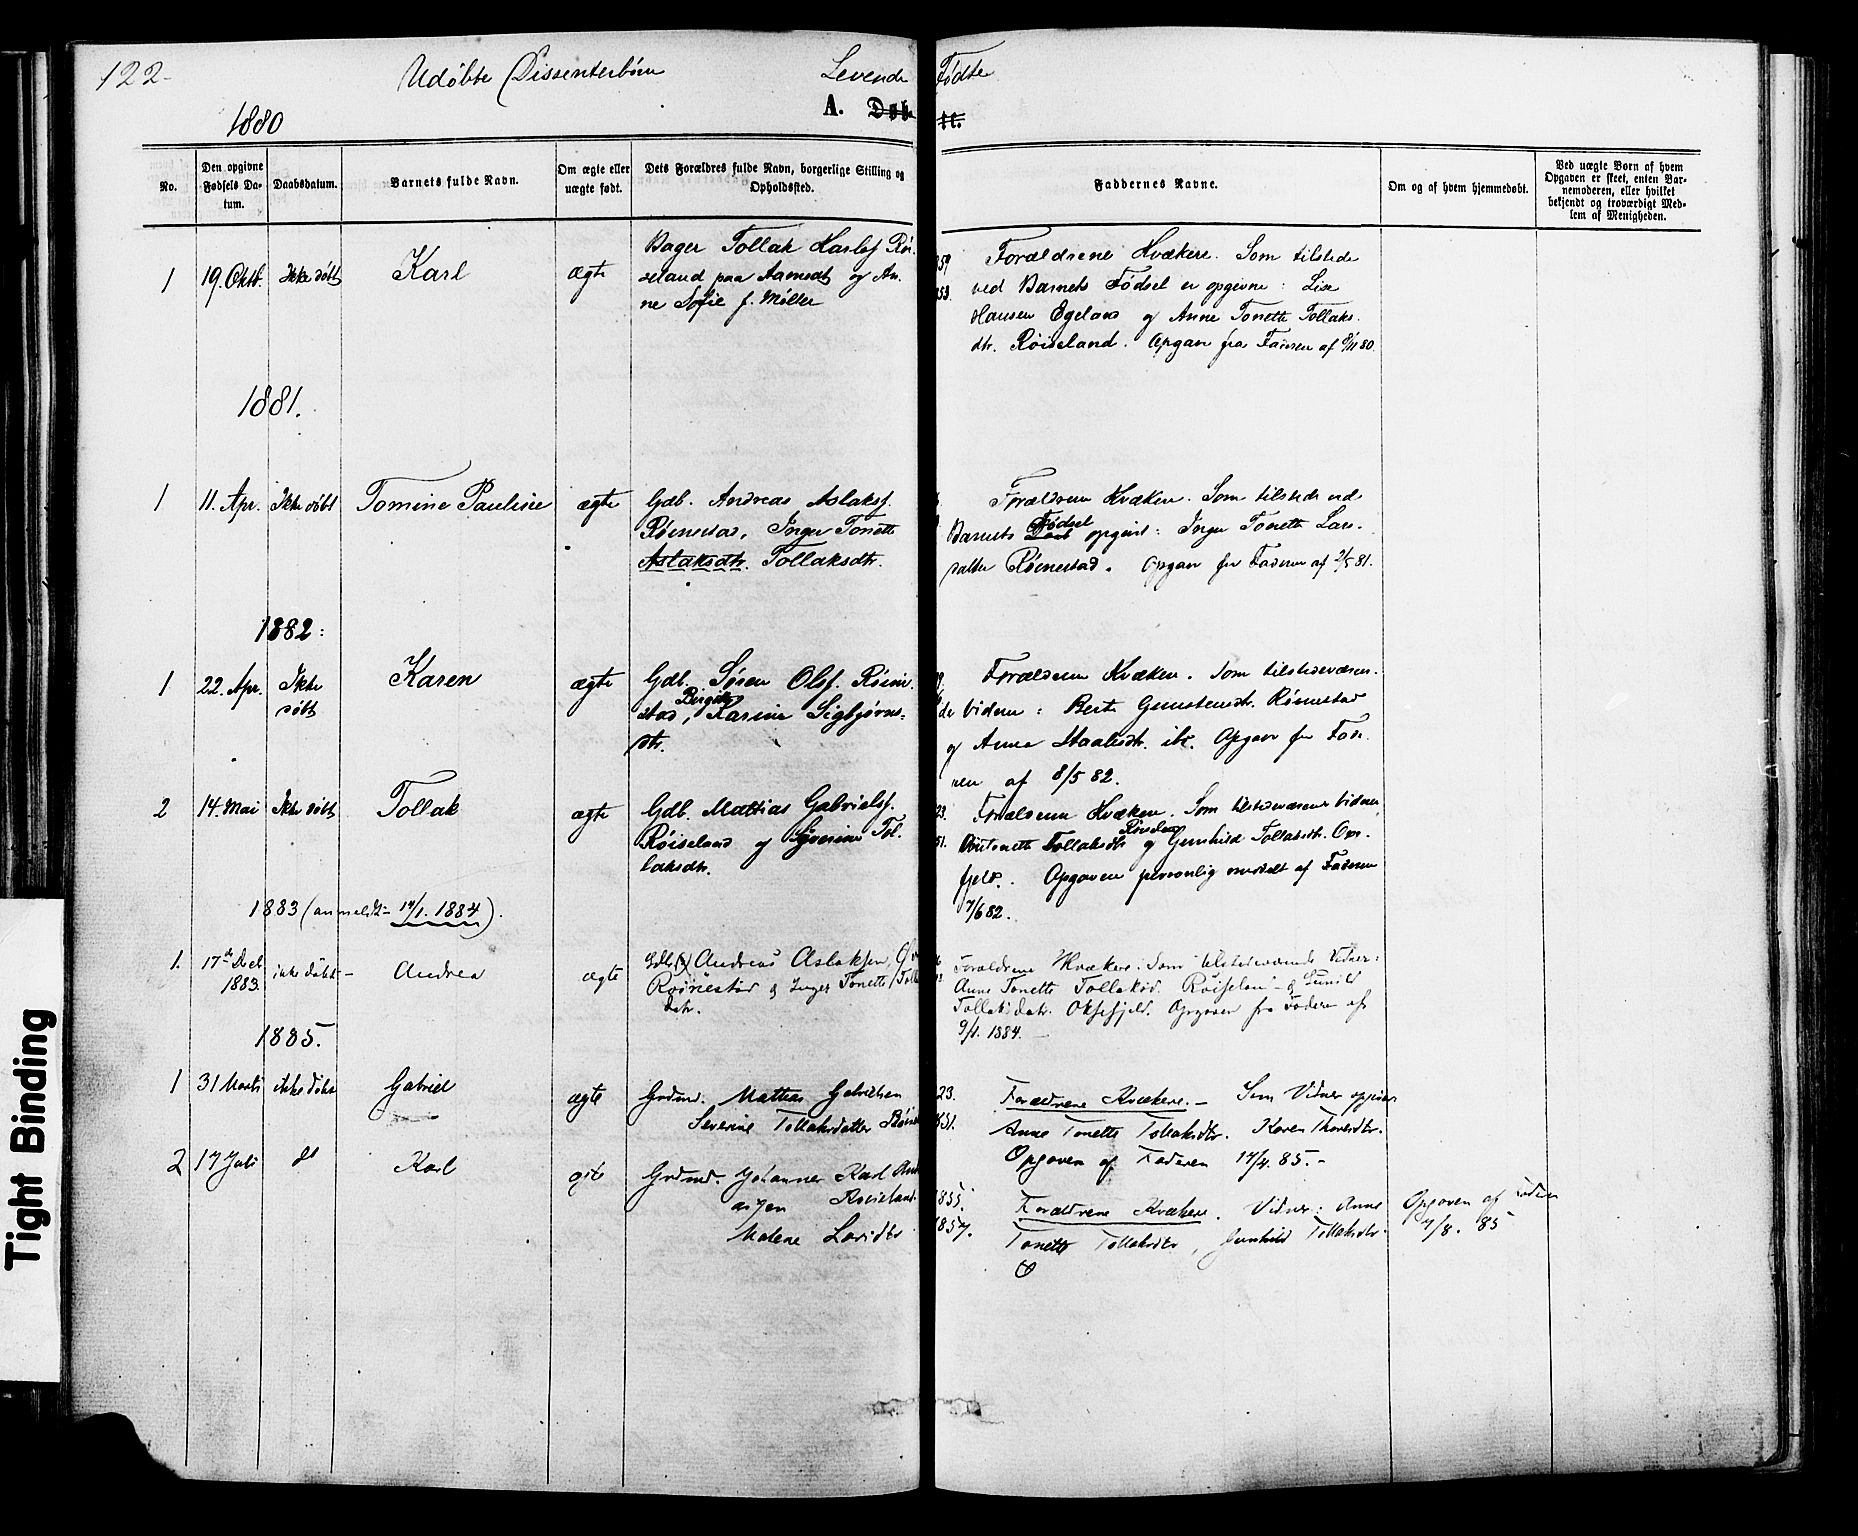 122
Udøbte Dissenterbørn Levende Fødte
1880 A. Døbte.
No.
Den opgivne Fødsels Datum.
Daabsdatum.
Barnets fulde Navn.
Om ægte eller uægte født.
Dets Forældres fulde Navn, borgerlige Stilling og Opholdssted.
Faddernes Navne.
Om og af hvem hjemmedøbt.
Ved uægte Børn af hvem Opgaven er skeet, enten Barnemoderen, eller hvilket bekjendt og troværdigt Medlem af Menigheden.
1 19. Oktb. Ikke døbt Karl ægte
Bager Tollak Roiseland paa Aamodt og Anne Sofie f. Møller
59 Forældrene Kvækere. Som tilstede
53. ved Barnets Fødsel er opgivne: Lise
Hansen Egeland og Anne Tonette Tollaks
dtr. Røiseland. Opgave fra Faderen af 8/11 80.
1881.
1 11. Apr. Ikke døbt Tomine Pauline ægte
Gdb. Andreas Aslaksf.
Rømestad, Inger Tonette
Aslaksdtr. Tollaksdtr.
Forældrene Kvækere. Som tilstede ved
Barnets Fødsel opgivet: Inger Tonette Lars
datter Rømestad. Opgave fra Faderen af 2/5 81.
1882:
1 22. Apr. Ikke døbt Karen ægte
Gdb. Søren Olsf. Røme
stad, Birgitte Karine Sigbjørns
dtr.
Forældrene Kvækere. Som tilstedeværen
de Vidner: Berte Gunstensdtr. Rømestad
og Anna Staalesdtr. ibd. Opgave fra Fade
ren af 8/5 82.
2 14. Mai Ikke døbt Tollak ægte
Gdb. Mattias Gabrielsf.
Røiseland og Syverine Tol
laksdtr.
23. Forældrene Kvækere. Som tilstedeværende Vidner,
51. Tonette Tollaksdtr Røiseland og Gunhild Tollaksdtr. Oxe
fjeld. Opgaven personlig meddelt af Faderen
7/6 82.
1883 (anmeldt 14/1. 1884).
1. 17de Decb 1883. ikke døbt Andrea ægte
Gdb. Andreas Aslaksen,
Roinestad & Inger Tonette Tolla
datr.
Forældrene Kvækere. Som tilstedeværende Vidner:
Anne Tonette Tollaksd. Røiseland & Gunild
Tollaksdatr. Oksefjeld. Opgaven fra Faderen af
9/1. 1884.
1885.
1 31 Marts ikke døbt Gabriel ægte
Grdmd. Mattias Gabrielsen
Severine Tollaksdatter Røise
23. Forældrene Kvækere. Som Vidner opgives
1851. Anne Tonette Tollaksdtr. Karen Thorsdtr.
Opgaven af Faderen 17/4. 85.
2 17 Juli do Karl ægte
Grdmd. Johannes Karl And
Roiseland.
Malene Larsdtr
1855. Forældrene Kvækere. Vidner: Anne
1857. Tonette Tollaksdtr, Gunhild Tollaksdtr.
Opgaven af Faderen
7/8. 85
Tight Binding